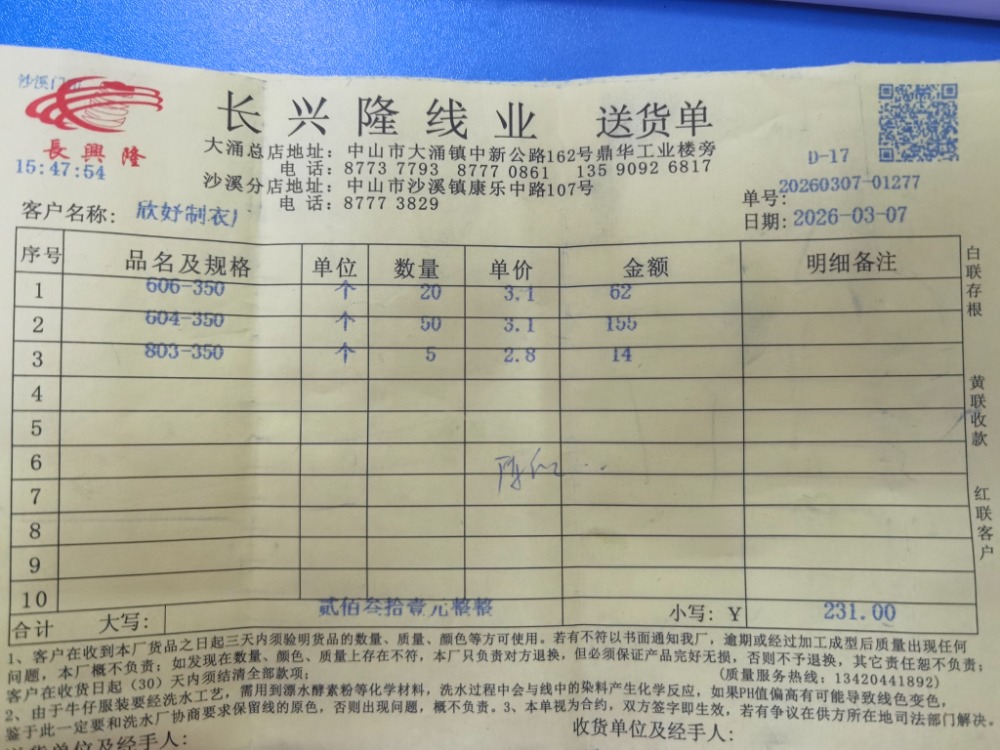 長興隆
15:47:54
长兴隆线业 送货单
大涌总店地址：中山市大涌镇中新公路162号鼎华工业楼旁
电话：8773 7793 8777 0861 135 9092 6817
沙溪分店地址：中山市沙溪镇康乐中路107号
电话：8777 3829
D-17
单号:20260307-01277
日期:2026-03-07
客户名称：欣妤制衣厂
序号 品名及规格 单位 数量 单价 金额 明细备注
1 606-350 个 20 3.1 62
2 604-350 个 50 3.1 155
3 803-350 个 5 2.8 14
4
5
6
7
8
9
10
合计 大写：贰佰叁拾壹元整整 小写：Y 231.00
白联存根
黄联收款
红联客户
1、客户在收到本厂货品之日起三天内须验明货品的数量、质量、颜色等方可使用。若有不符以书面通知我厂，逾期或经过加工成型后质量出现任何
问题，本厂概不负责；如发现在数量、颜色、质量上存在不符，本厂只负责对方退换，但必须保证产品完好无损，否则不予退换，其它责任恕不负责；
客户在收货日起（30）天内须结清全部款项； (质量服务热线：13420441892)
2、由于牛仔服装要经洗水工艺，需用到漂水酵素粉等化学材料，洗水过程中会与线中的染料产生化学反应，如果PH值偏高有可能导致线色变色，
鉴于此一定要和洗水厂协商要求保留线的原色，否则出现问题，概不负责。3、本单视为合约，双方签字即生效，若有争议在供方所在地司法部门解决。
送货单位及经手人： 收货单位及经手人：